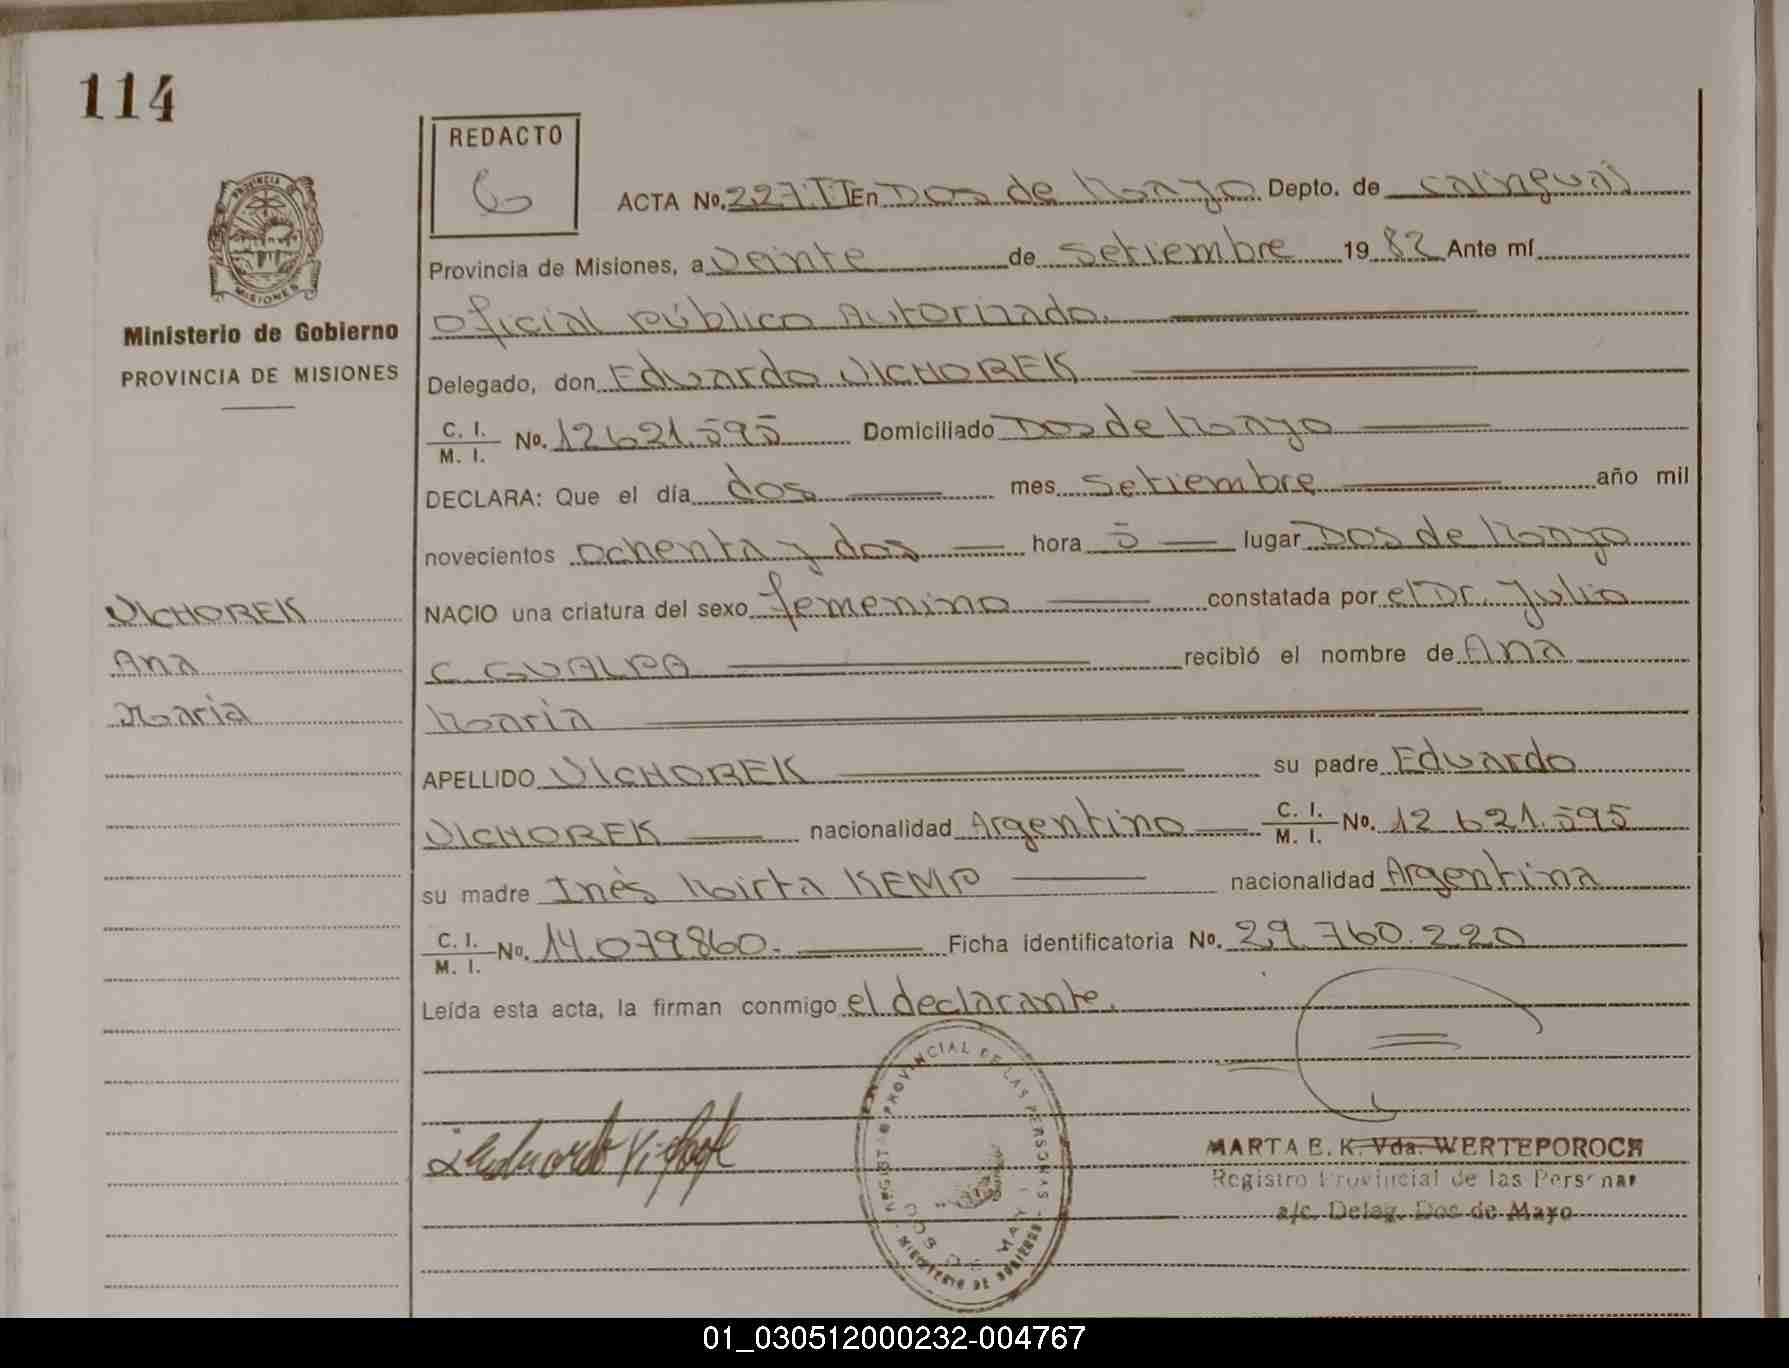 114
REDACTO
ACTA No. 227 TT En Dos de Mayo Depto. de Cainguas
PROVINCIA DE
MISIONES
Provincia de Misiones, a veinte de setiembre 1982 Ante mí
Ministerio de Gobierno
oficial público Autorizado.
PROVINCIA DE MISIONES
Delegado, don Eduardo VICHOREK
C. I.
M. I. No. 12621.595 Domiciliado Dos de Mayo
DECLARA: Que el día dos mes setiembre año mil
novecientos ochenta y dos hora 5 lugar Dos de Mayo
VICHOREK
NACIO una criatura del sexo femenino constatada por el Dr. Julio
Ana
C. GUALPA recibió el nombre de Ana
Maria
Maria
APELLIDO VICHOREK su padre Eduardo
VICHOREK nacionalidad Argentino C. I. M. I. No. 12 621.595
su madre Inés Mirta KEMP nacionalidad Argentina
C. I.
M. I. No. 14.079860. Ficha identificatoria No. 29.760.220
Leída esta acta, la firman conmigo el declarante.
REGISTRO PROVINCIAL DE LAS PERSONAS
DOS DE MAYO
MINISTERIO DE GOBIERNO
Eduardo
MARTA E. K. Vda. WERTEPOROCH
Registro Provincial de las Personas
a/c. Deleg. Dos de Mayo
01_030512000232-004767